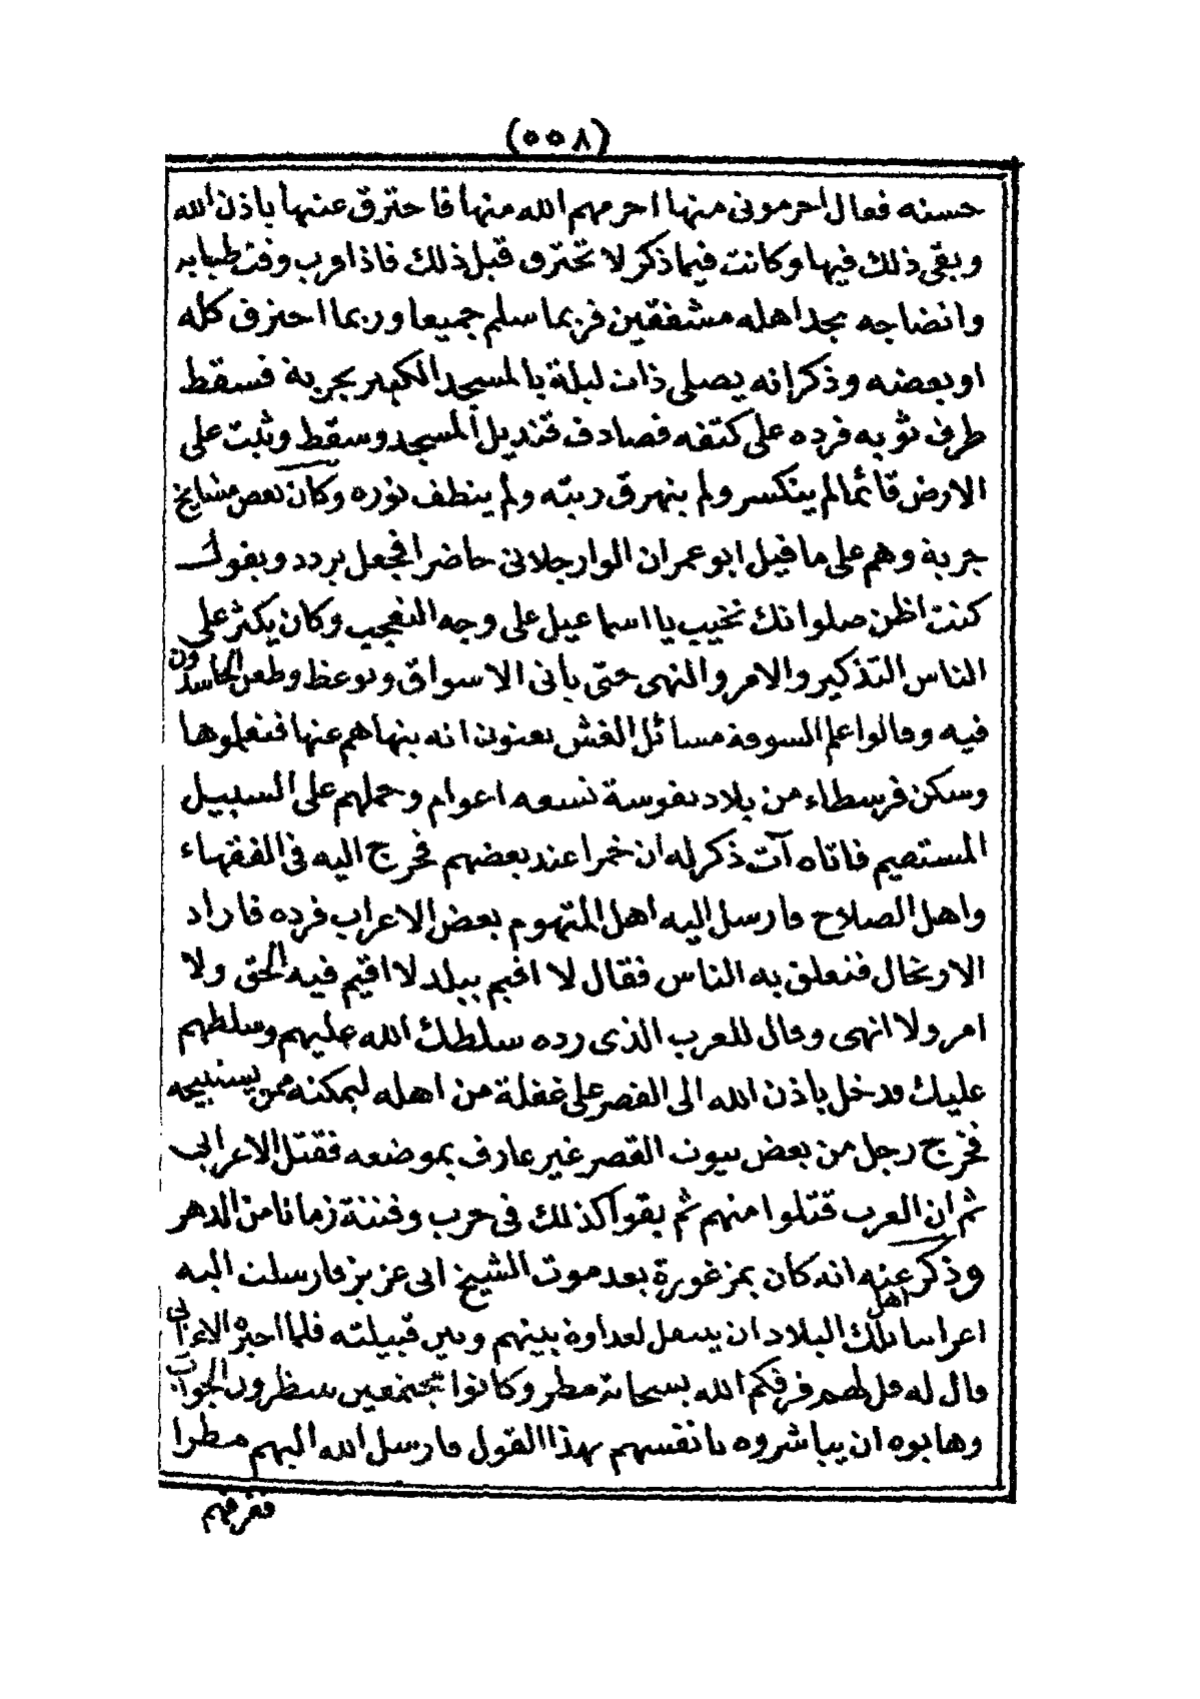 (٥٥٨)
حسنه فقال احرمونى منها احرمهم الله منها فاحترق عنبها باذن الله
وبقى ذلك فيها وكانت فيما ذكر لا تحترق قبل ذلك فاذا قرب وقت طيابه
وانضاجه تجد اهله مشفقين فربما سلم جميعا وربما احترق كله
او بعضه وذكر انه يصلى ذات ليلة بالمسجد الكبير بجربة فسقط
طرف ثوبه فرده على كتفه فصادف قنديل المسجد وسقط وثبت على
الارض قائما لم ينكسر ولم ينهرق زيته ولم ينطف نوره وكان بعض مشايخ
جربة وهم على ما قيل ابو عمران الوارجلانى حاضرا فجعل يردد ويقول
كنت اظن صلواتك تخيب يا اسماعيل على وجه التعجب وكان يكثر على
الناس التذكير والامر والنهى حتى يأتى الاسواق ويوعظ وطعن الحاسدون
فيه وقالوا علم السوقة مسائل الغش يعنون انه ينهاهم عنها فتعلموها
وسكن فرسطاء من بلاد نفوسة تسعه اعوام وحملهم على السبيل
المستقيم فاتاه آت ذكر له ان خمرا عند بعضهم فخرج اليه فى الفقهاء
واهل الصلاح فارسل اليه اهل المتهوم بعض الاعراب فرده فاراد
الارتحال فتعلق به الناس فقال لا اقيم ببلد لا اقيم فيه الحق ولا
امر ولا انهى وقال للعرب الذى رده سلطك الله عليهم وسلطهم
عليك ودخل باذن الله الى القصر على غفلة من اهله ليمكنه ممن يستبيحه
فخرج رجل من بعض بيوت القصر غير عارف بموضعه فقتل الاعرابى
ثم ان العرب قتلوا منهم ثم بقوا كذلك فى حرب وفتنة زمانا من الدهر
وذكر عنه انه كان بمزغورة بعد موت الشيخ ابى عزيز فارسلت اليه
اهل
اعرابيا تلك البلاد ان يسهل لعداوة بينهم وبين قبيلته فلما اخبره الاعرابى
قال له قل لهم فرقكم الله بسحابة مطر وكانوا مجتمعين ينظرون الجواب
وهابوه ان يباشروه بانفسهم بهذا القول فارسل الله اليهم مطرا
ففرقهم